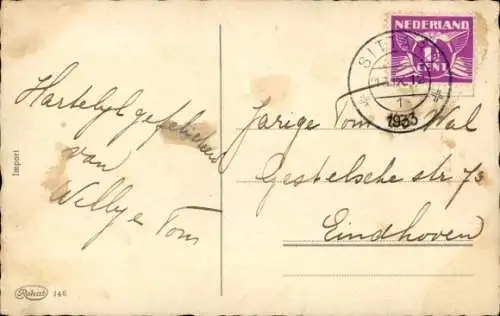 Hartelyk gefeliciteerd
van
Willy e Tom
Jarige Tom Wal
Gestelsche str 73
Eindhoven
NEDERLAND
1½
CENT
SITT
1
1933
Import
Rakah 146